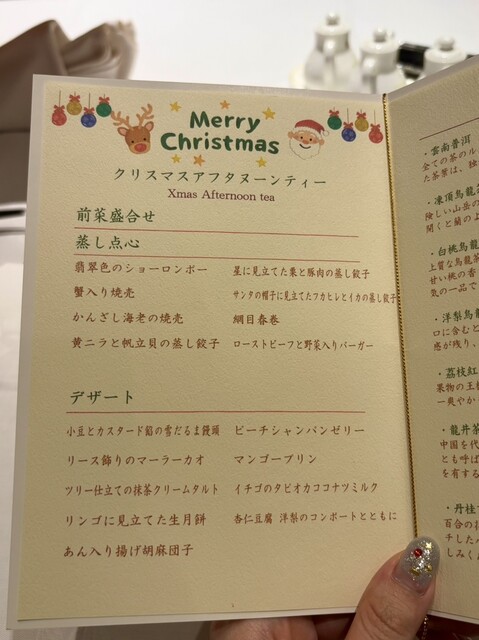 Merry
Christmas
クリスマスアフタヌーンティー
Xmas Afternoon tea
前菜盛合せ
蒸し点心
翡翠色のショーロンポー
蟹入り焼売
かんざし海老の焼売
黄ニラと帆立貝の蒸し餃子
星に見立てた栗と豚肉の蒸し餃子
サンタの帽子に見立てたフカヒレとイカの蒸し餃子
網目春巻
ローストビーフと野菜入りバーガー
デザート
小豆とカスタード餡の雪だるま饅頭
リース飾りのマーラーカオ
ツリー仕立ての抹茶クリームタルト
リンゴに見立てた生月餅
あん入り揚げ胡麻団子
ピーチシャンパンゼリー
マンゴープリン
イチゴのタピオカココナツミルク
杏仁豆腐 洋梨のコンポートとともに
・雲南普洱
全ての茶のル
た茶葉は、独
・凍頂烏龍
険しい山岳の
開くと蘭のよ
・白桃烏龍
上質な烏龍
甘い桃の香
気の一品で
・洋梨烏
口に含むと
感が残り、
・茘枝紅
果物の王
ー爽やか
・龍井茶
中国を代
とも呼ば
を有する
・丹桂
百合の
チした
しみく